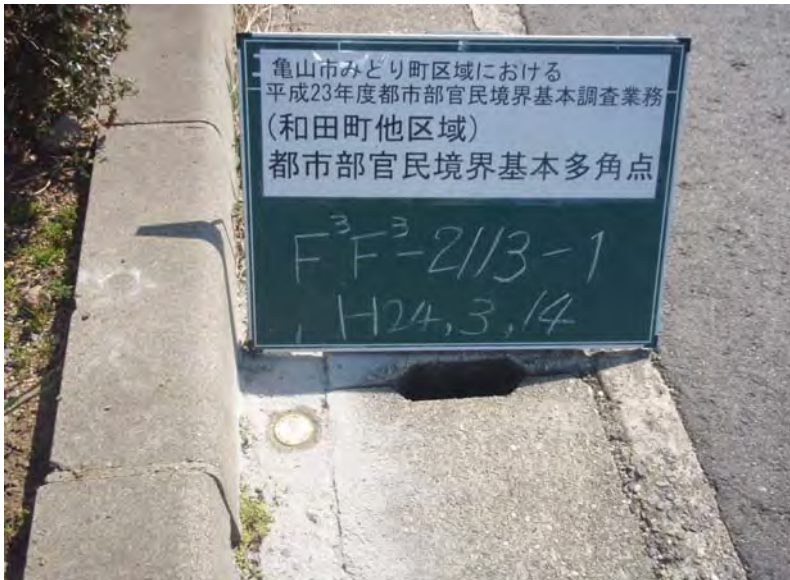 亀山市みどり町区域における
平成23年度都市部官民境界基本調査業務
(和田町他区域)
都市部官民境界基本多角点
F³F³-2113-1
H24,3,14